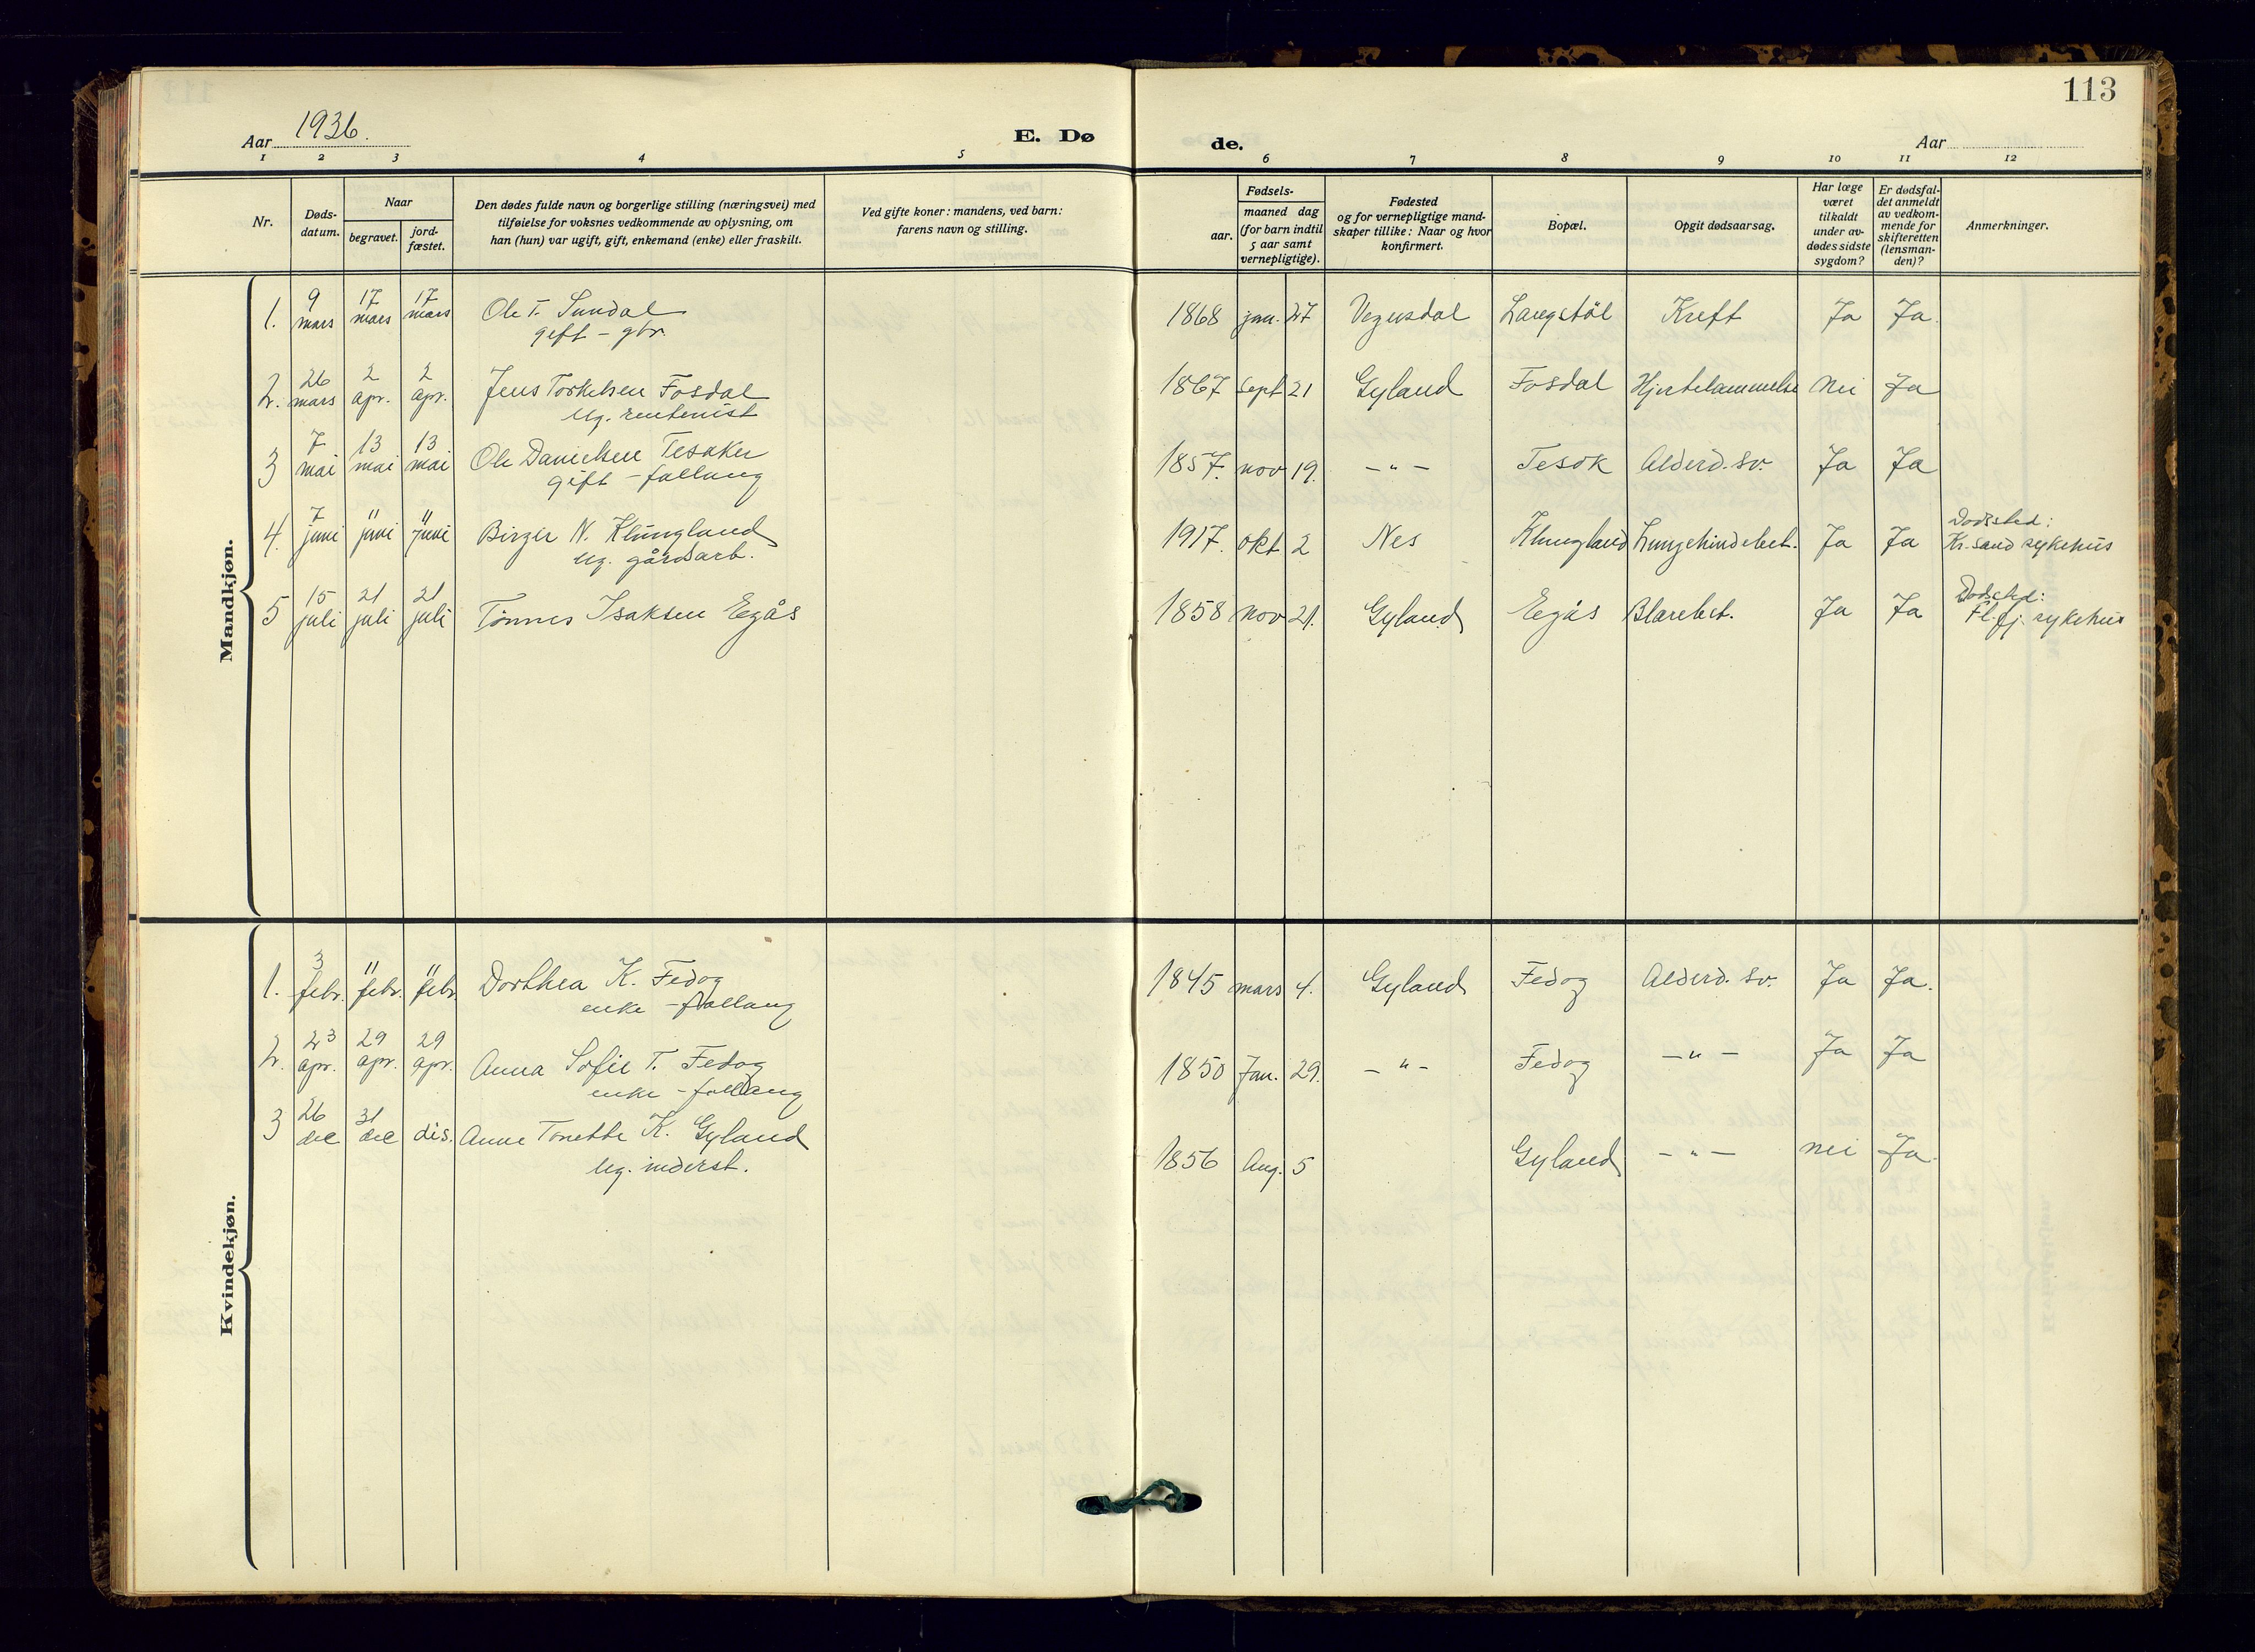 113
Aar 1936.
E. Dø
de.
Aar
1 2 3 4 5 6 7 8 9 10 11 12
Nr.
Døds-
datum.
Naar
begravet.
jord-
fæstet.
Den dødes fulde navn og borgerlige stilling (næringsvei) med
tilføielse for voksnes vedkommende av oplysning, om
han (hun) var ugift, gift, enkemand (enke) eller fraskilt.
Ved gifte koner: mandens, ved barn:
farens navn og stilling.
Fødsels-
aar.
maaned dag
(for barn indtil
5 aar samt
vernepligtige).
Fødested
og for vernepligtige mand-
skaper tillike: Naar og hvor
konfirmert.
Bopæl.
Opgit dødsaarsag.
Har læge
været
tilkaldt
under av-
dødes sidste
sygdom?
Er dødsfal-
det anmeldt
av vedkom-
mende for
skifteretten
(lensman-
den)?
Anmerkninger.
Mandkjøn.
1. 9 mars 17 mars 17 mars Ole T. Sundal 1868 jan. 27 Vegusdal Langstöl Kreft Ja Ja.
gift - gbr.
2. 26 mars 2 apr. 2 apr. Jens Torkelsen Fosdal 1867 Sept 21 Gyland Fosdal Hjertelammelse Nei Ja
ug. rentenist
3 7 mai 13 mai 13 mai Ole Danielsen Tesaker 1857. nov 19. - " - Tesok Alderd. sv. Ja Ja
gift - follaug
4. 7 juni 11 juni 11 juni Birger N. Klungland 1917. okt 2 Nes Klungland Lungehindebet. Ja Ja Dødssted:
Kr.sand sykehus
ug. gårdsarb.
5 15 juli 21 juli 21 juli Tønnes Isaksen Egås 1858 nov 21. Gyland Egås Blærebet. Ja Ja Dødsted:
Fl.fj. sykehus
Kvindekjøn.
1. 3 febr. 11 febr. 11 febr. Dorthea K. Fedog 1845 mars 4. Gyland Fedog Alderd. sv. Ja Ja.
enke - follaug
2. 23 apr. 29 apr. 29 apr. Anna Sofie T. Fedog 1850 Jan. 29. - " - Fedog - " - Ja Ja
enke - follaug
3 26 des 31 des dis. Anne Tonette K. Gyland 1856 Aug. 5 Gyland - " - nei Ja.
ug. inderst.